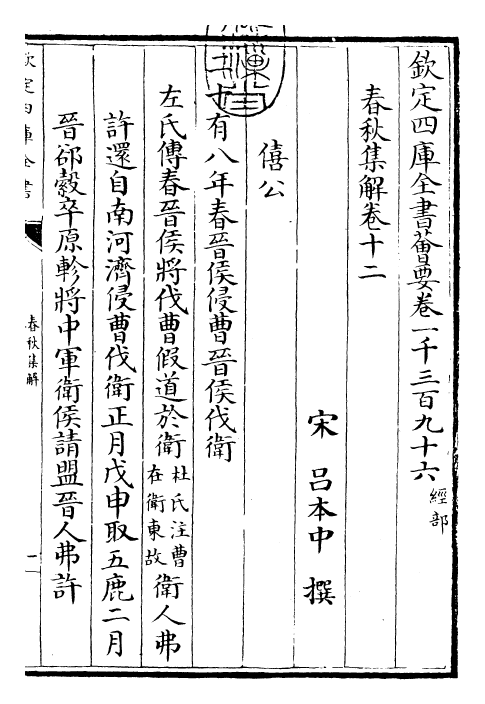 欽定四庫全書薈要卷一千三百九十六經部
春秋集解卷十二
宋 吕本中 撰
僖公
二十有八年春晉侯侵曹晉侯伐衛
左氏傳春晉侯將伐曹假道於衛杜氏注曹在衛東故衛人弗
許還自南河濟侵曹伐衛正月戊申取五鹿二月
晉郤縠卒原軫將中軍衛侯請盟晉人弗許
欽定四庫全書
春秋集解
一